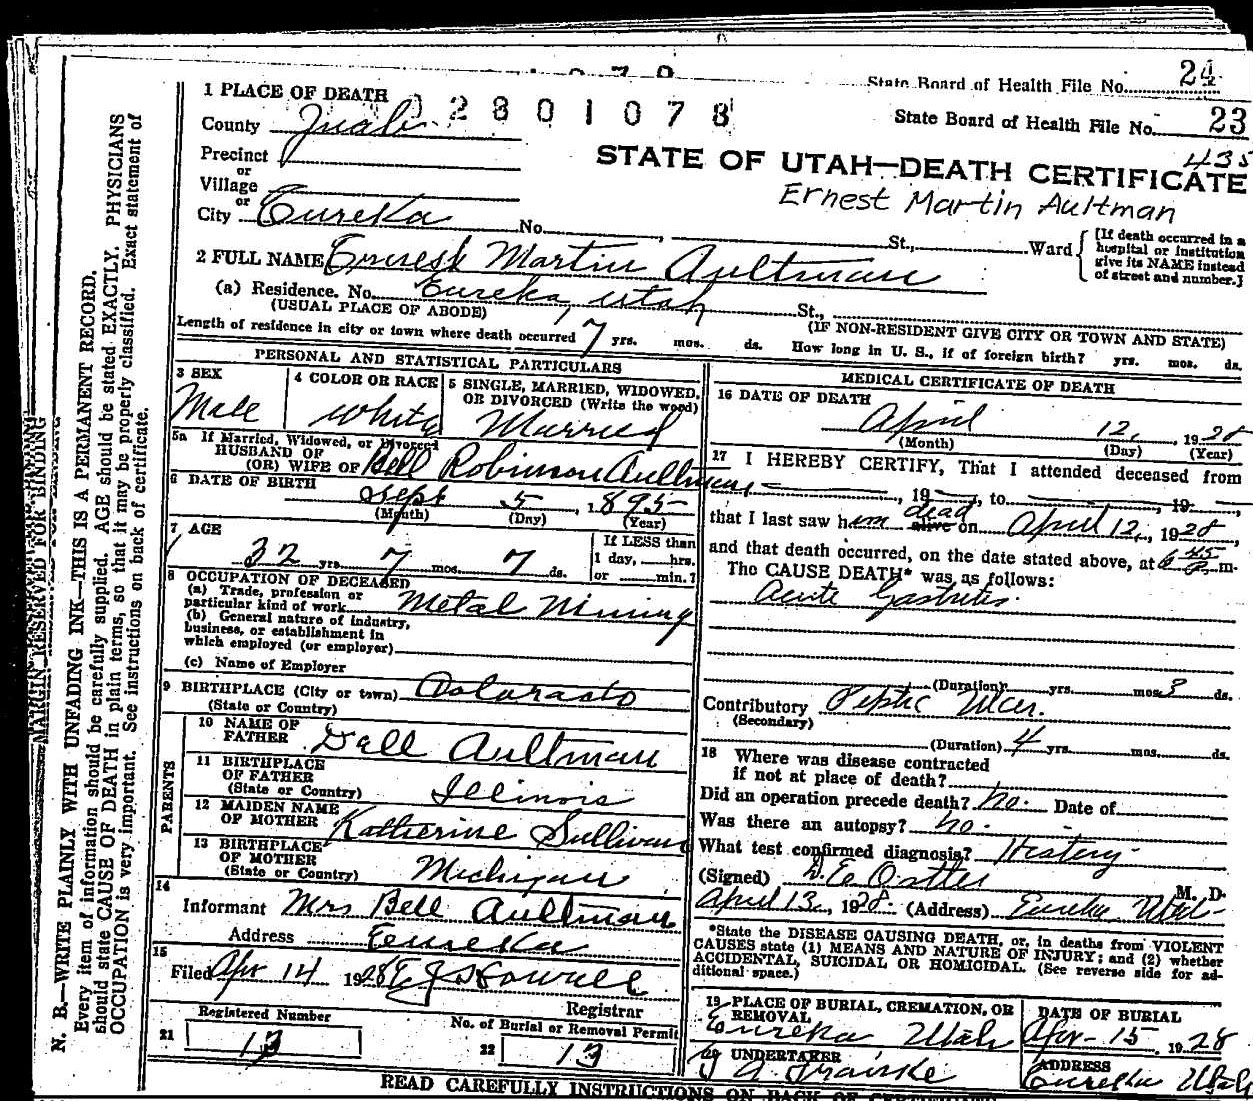 State Board of Health File No. 24
1 PLACE OF DEATH 02801078
State Board of Health File No. 23
County Juab
435
Precinct
or
Village
or
City Eureka No. St., Ward
STATE OF UTAH—DEATH CERTIFICATE
Ernest Martin Aultman
[If death occurred in a
hospital or institution
give its NAME instead
of street and number.]
2 FULL NAME Ernest Martin Aultman
(a) Residence. No. Eureka, Utah St.,
(USUAL PLACE OF ABODE) (IF NON-RESIDENT GIVE CITY OR TOWN AND STATE)
Length of residence in city or town where death occurred 7 yrs. mos. ds. How long in U. S., if of foreign birth? yrs. mos. ds.
PERSONAL AND STATISTICAL PARTICULARS
3 SEX
Male
4 COLOR OR RACE
White
5 SINGLE, MARRIED, WIDOWED,
OR DIVORCED (Write the word)
Married
5a If Married, Widowed, or Divorced
HUSBAND OF
(OR) WIFE OF Bell Robinson Aultman
6 DATE OF BIRTH
Sept 5, 1895
(Month) (Day) (Year)
7 AGE
32 yrs. 7 mos. 7 ds.
If LESS than
1 day, hrs.
or min.?
8 OCCUPATION OF DECEASED
(a) Trade, profession or
particular kind of work Metal Mining
(b) General nature of industry,
business, or establishment in
which employed (or employer)
(c) Name of Employer
9 BIRTHPLACE (City or town) Colorado
(State or Country)
PARENTS
10 NAME OF
FATHER Dall Aultman
11 BIRTHPLACE
OF FATHER
(State or Country) Illinois
12 MAIDEN NAME
OF MOTHER Katherine Sullivan
13 BIRTHPLACE
OF MOTHER
(State or Country) Michigan
14
Informant Mrs Bell Aultman
Address Eureka
15
Filed Apr 14 1928
Registrar
21 Registered Number
13
No. of Burial or Removal Permit
22 13
MEDICAL CERTIFICATE OF DEATH
16 DATE OF DEATH
April 12, 1928
(Month) (Day) (Year)
17 I HEREBY CERTIFY, That I attended deceased from
, 19 , to , 19 ,
that I last saw him alive dead on April 12, 1928,
and that death occurred, on the date stated above, at 6 45 m.
The CAUSE DEATH* was as follows:
Acute Gastritis.
(Duration) yrs. mos. 3 ds.
Contributory Peptic Ulcer.
(Secondary)
(Duration) 4 yrs. mos. ds.
18 Where was disease contracted
if not at place of death?
Did an operation precede death? No. Date of
Was there an autopsy? No.
What test confirmed diagnosis? History
(Signed) D. E. Ostler M. D.
April 13, 1928 (Address) Eureka Utah
*State the DISEASE CAUSING DEATH, or, in deaths from VIOLENT
CAUSES state (1) MEANS AND NATURE OF INJURY; and (2) whether
ACCIDENTAL, SUICIDAL OR HOMICIDAL. (See reverse side for ad-
ditional space.)
19 PLACE OF BURIAL, CREMATION, OR
REMOVAL
Eureka Utah
DATE OF BURIAL
Apr-15, 1928
20 UNDERTAKER
ADDRESS
Eureka Utah
READ CAREFULLY INSTRUCTIONS ON BACK OF CERTIFICATE
MARGIN RESERVED FOR BINDING
N. B.—WRITE PLAINLY WITH UNFADING INK—THIS IS A PERMANENT RECORD.
Every item of information should be carefully supplied. AGE should be stated EXACTLY. PHYSICIANS
should state CAUSE OF DEATH in plain terms, so that it may be properly classified. Exact statement of
OCCUPATION is very important. See instructions on back of certificate.